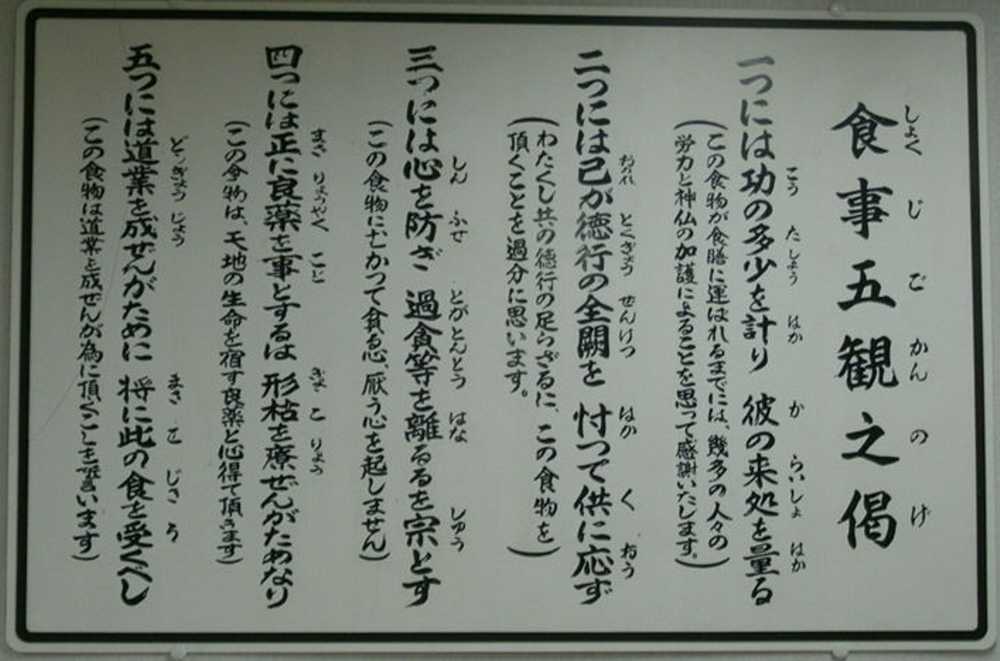 しょく じ ご かん の げ
食事五観之偈
こう たしょう はか か らいしょ はか
一つには功の多少を計り 彼の来処を量る
（この食物が食膳に運ばれるまでには、幾多の人々の
労力と神仏の加護によることを思って感謝いたします。）
おのれ とくぎょう ぜんけつ はか く おう
二つには己が徳行の全闕を 忖って供に応ず
（わたくし共の徳行の足らざるに、この食物を
頂くことを過分に思います。）
しん ふせ とがとんとう はな しゅう
三つには心を防ぎ 過貪等を離るるを宗とす
（この食物にむかって貪る心、厭う心を起しません）
まさ りょうやく こと ぎょうこ りょう
四つには正に良薬を事とするは 形枯を療ぜんがためなり
（この食物は、天地の生命を宿す良薬と心得て頂きます）
どうぎょう じょう まさ こ じき う
五つには道業を成ぜんがために 将に此の食を受くべし
（この食物は道業を成ぜんが為に頂くことを誓います）